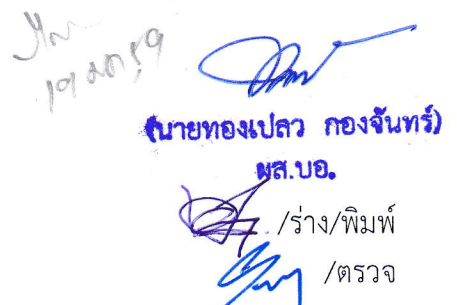 (นายทองเปลว กองจันทร์)
ผส.บอ.
/ร่าง/พิมพ์
/ตรวจ